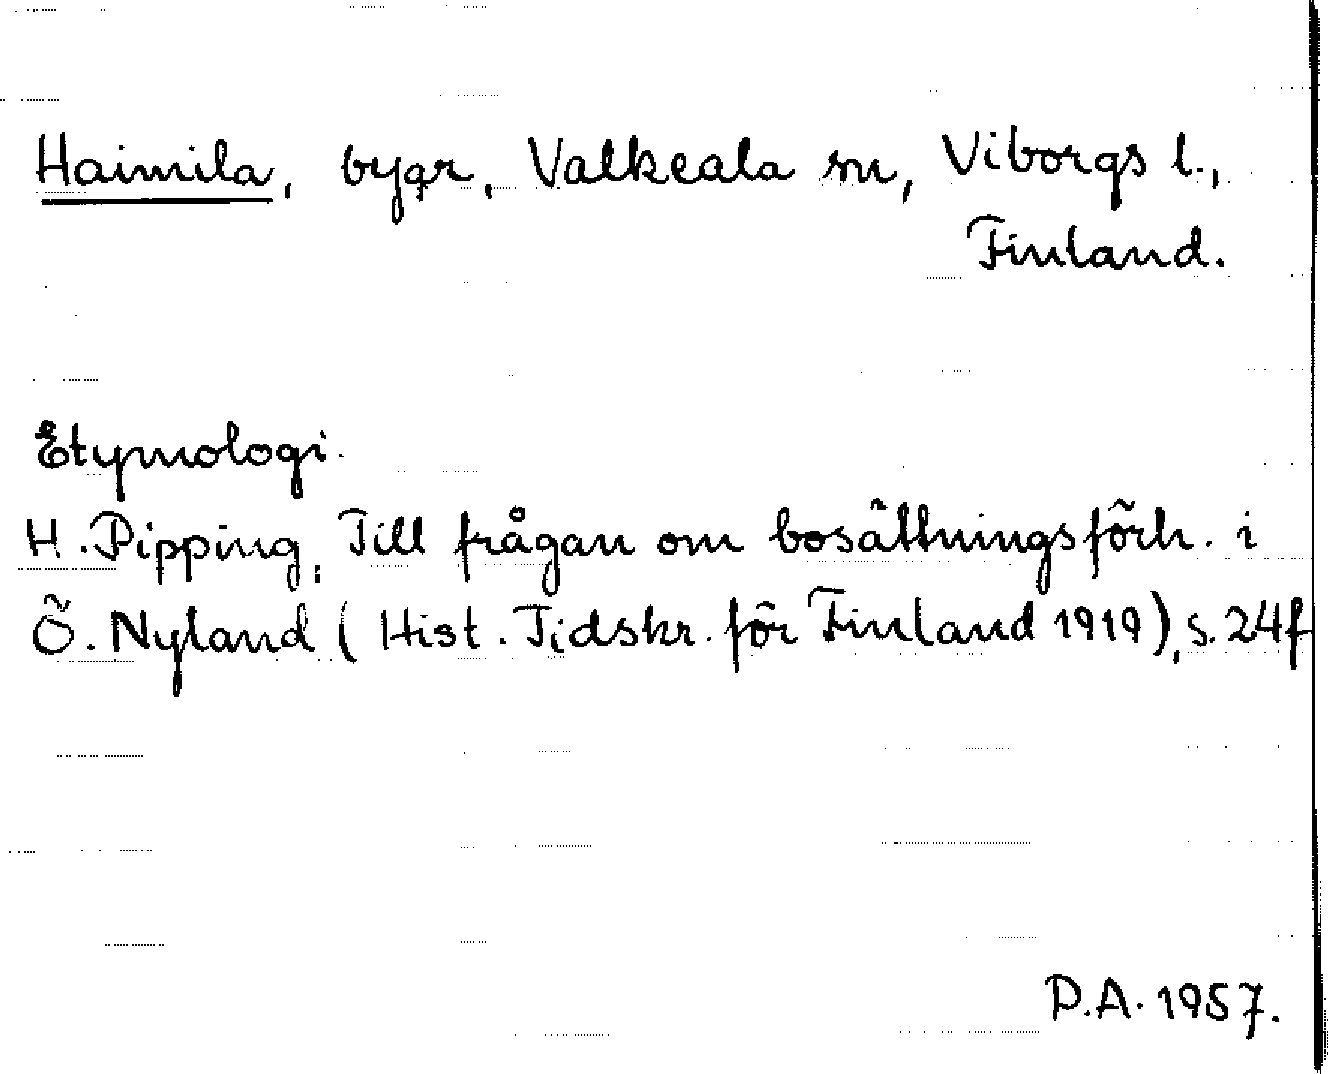 Haimila, bygr, Valkeala sn, Viborgs l.,
Finland.
Etymologi.
H. Pipping, Till frågan om bosättningsförh. i
Ö. Nyland (Hist. Tidskr. för Finland 1919), s. 24f
P.A. 1957.